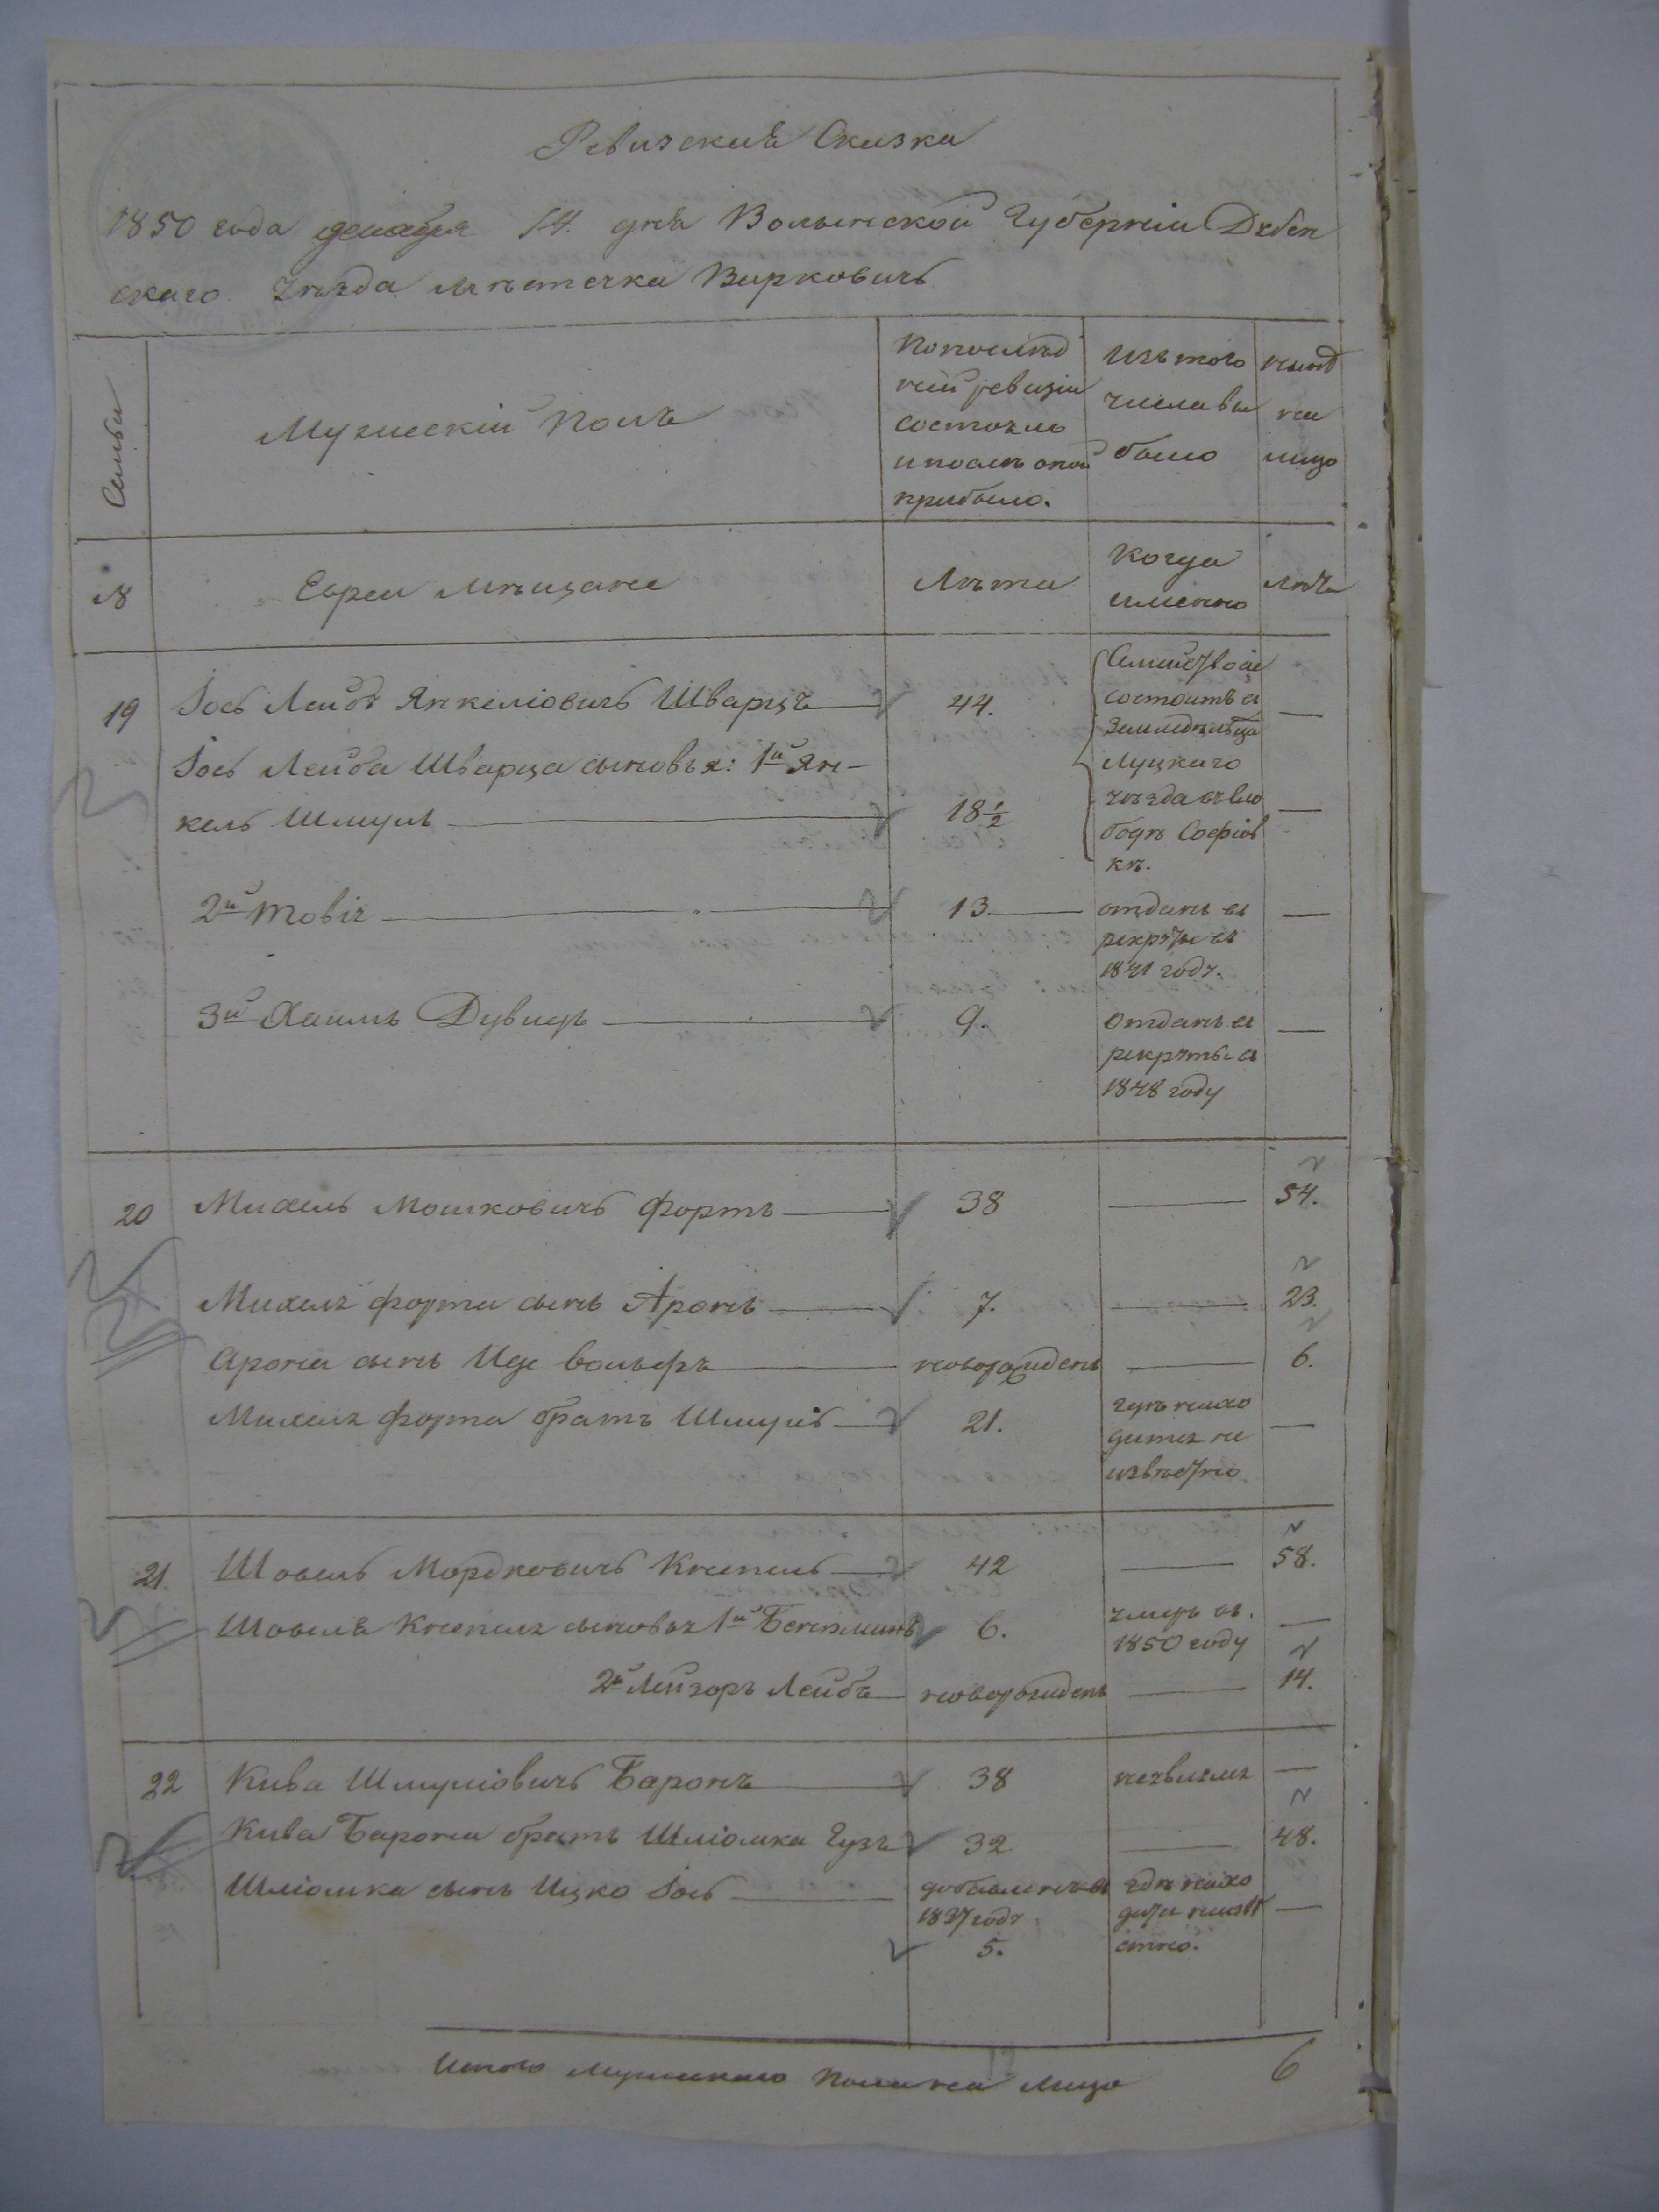 Ревизская Сказка
1850 года декабря 14. дня Волынской Губерніи Дубен
скаго уѣзда мѣстечка Верковичъ
Семьи
Мужескій Полъ
По послѣд
ней ревизіи
состояло
и послѣ оной
прибыло.
Изъ того
числа вы
было
нынѣ
на
лицо
№
Евреи мѣщане
Лѣта
Когда
именно
лѣта
19
Іось Лейбъ Янкеліовичъ Шварцъ
44.
Семейство сіе
состоитъ въ
Земледѣльца
Луцкаго
уѣзда въ сло
бодѣ Софіов
кѣ.
—
Іось Лейба Шварца сыновья: 1й Ян-
кель Шмуль
18 1/2
—
2й Товія
13
отданъ въ
рекруты въ
1841 году.
—
3й Хаимъ Дувидъ
9.
отданъ въ
рекруты въ
1848 году
—
20
Михель Мошковичъ Фортъ
38
—
54.
Михеля Форта сынъ Аронъ
7.
—
23.
Арона сынъ Ице Вольфъ
новорожденъ
—
6.
Михеля Форта братъ Шмуль
21.
гдѣ нахо
дится не
извѣстно
—
21
Шоель Мордковичъ Кнепель
42
—
58.
Шоеля Кнепеля сыновья 1й Беніяминъ
6.
умеръ въ
1850 году
—
2й Лейзоръ Лейбъ
новорожденъ
—
14.
22
Кива Шмуліовичъ Баронъ
38
неявился
—
Кива Барона братъ Шліомка Гузъ
32
—
48.
Шліомка сынъ Ицко Іось
добавленъ въ
1837 году
5.
гдѣ нахо
дится неизвѣ
стно.
—
Итого Мужескаго Пола на Лицо
6